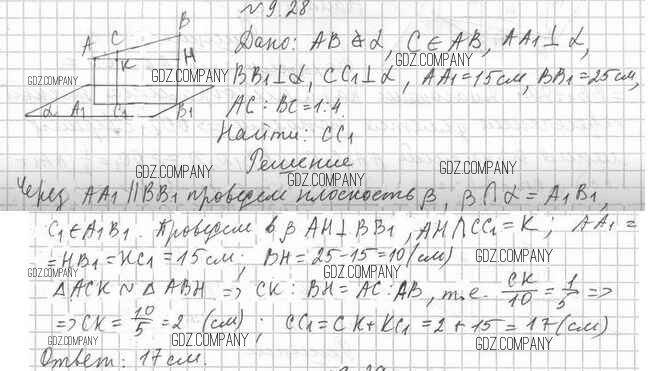 № 9.28
Дано: AB ⊄ α, C ∈ AB, AA₁ ⊥ α,
BB₁ ⊥ α, CC₁ ⊥ α, AA₁ = 15 см, BB₁ = 25 см,
AC : BC = 1:4.
Найти: CC₁
Решение
Через AA₁ || BB₁ проведем плоскость β, β ∩ α = A₁B₁,
C₁ ∈ A₁B₁. Проведем в β AH ⊥ BB₁, AH ∩ CC₁ = K; AA₁ =
= HB₁ = KC₁ = 15 см; BH = 25 - 15 = 10 (см)
△ACK ∾ △ABH => CK : BH = AC : AB, т.е. CK/10 = 1/5 =>
=> CK = 10/5 = 2 (см); CC₁ = CK + KC₁ = 2 + 15 = 17 (см)
Ответ: 17 см.
B
C
A
K
H
α
A₁
C₁
B₁
GDZ.COMPANY
GDZ.COMPANY
GDZ.COMPANY
GDZ.COMPANY
GDZ.COMPANY
GDZ.COMPANY
GDZ.COMPANY
GDZ.COMPANY
GDZ.COMPANY
GDZ.COMPANY
GDZ.COMPANY
GDZ.COMPANY
GDZ.COMPANY
GDZ.COMPANY